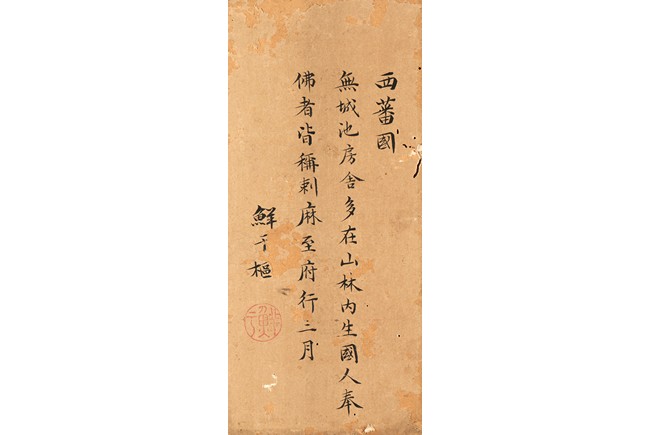 西蕃國
無城池房舍多在山林內生國人奉
佛者皆稱刺麻至府行三月
鮮于樞